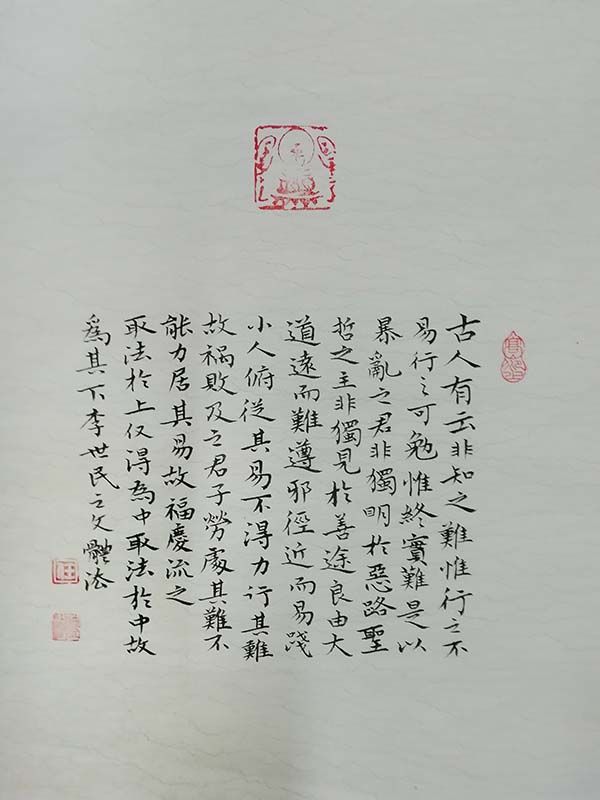 古人有云非知之難惟行之不
易行之可勉惟終實難是以
暴亂之君非獨明於惡路聖
哲之主非獨見於善途良由大
道遠而難遵邪徑近而易踐
小人俯從其易不得力行其難
故禍敗及之君子勞處其難不
能力居其易故福慶流之
取法於上仅得為中取法於中故
爲其下李世民之文體法